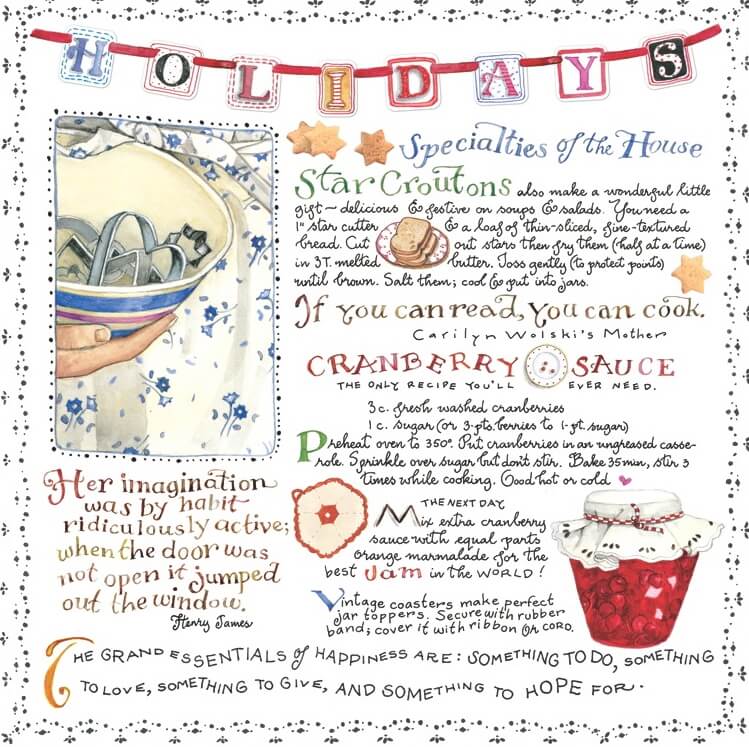 HOLIDAYS
Specialties of the House
Star Croutons also make a wonderful little
gift~ delicious & festive on soups & salads. You need a
1" star cutter & a loaf of thin-sliced, fine-textured
bread. Cut out stars then fry them (half at a time)
in 3 T. melted butter. Toss gently (to protect points)
until brown. Salt them; cool & put into jars.
If you can read, you can cook.
Carilyn Wolski's Mother
CRANBERRY SAUCE
THE ONLY RECIPE YOU'LL EVER NEED.
3 c. fresh washed cranberries
1 c. sugar (or 3-pts. berries to 1-pt. sugar)
Preheat oven to 350°. Put cranberries in an ungreased casse-
role. Sprinkle over sugar but don't stir. Bake 35 min, stir 3
times while cooking. Good hot or cold
THE NEXT DAY
Mix extra cranberry
sauce with equal parts
orange marmalade for the
best Jam in the WORLD!
Vintage coasters make perfect
jar toppers. Secure with rubber
band; cover it with ribbon OR CORD.
Her imagination
was by habit
ridiculously active;
when the door was
not open it jumped
out the window.
Henry James
THE GRAND ESSENTIALS of HAPPINESS ARE: SOMETHING TO DO, SOMETHING
TO LOVE, SOMETHING TO GIVE, AND SOMETHING TO HOPE FOR.